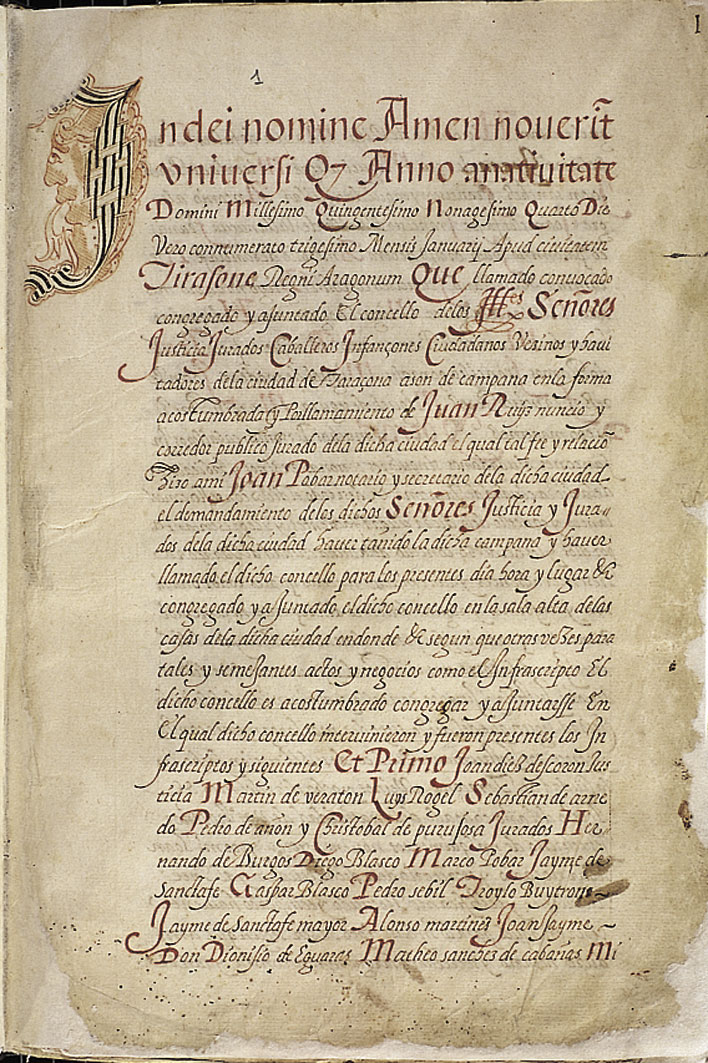 1
I
In dei nomine Amen nouerit
vniuersi Qz Anno anatiuitate
Domini Millesimo Quingentesimo Nonagesimo Quarto Die
Vero connumerato trigesimo Mensis Januarij Apud ciuitatem
Tirasone Regni Aragonum Que llamado conuocado
congregado y ajuntado El concello delos Señores
Justicia Jurados Caballeros Infançones Ciudadanos Vezinos y haui
tadores dela ciudad de Taraçona ason de campana enla forma
acostumbrada y Porllamamiento de Juan Ruyz nuncio y
corredor publico Jurado dela dicha ciudad el qual tal fee y relacio
hizo ami Joan Pobar notario y secretario dela dicha ciudad
el demandamiento delos dichos Señores Justicia y Jura
dos dela dicha ciudad hauer tañido la dicha campana y hauer
llamado el dicho concello para los presentes dia hora y lugar &c
congregado y ajuntado el dicho concello en la sala alta delas
casas dela dicha ciudad endonde &c segun que otras vezes para
tales y semejantes actos y negocios como el Infrascripto El
dicho concello es acostumbrado congregar y ajuntarsse En
El qual dicho concello interuinieron y fueron presentes los In
frascriptos y siguientes Et Primo Joan diez descoron Jus
ticia Martin de veraton Luys Rogel Sebastian de arne
do Pedro de añon y Christobal de purujosa Jurados Her
nando de Burgos Diego Blasco Marco Pobar Jayme de
Sanctafe Gaspar Blasco Pedro sebil Troylo Buytron
Jayme de Sanctafe mayor Alonso martinez Joan Jayme
Don Dionisio de Eguaras Matheo sanchez de cabañas Mi